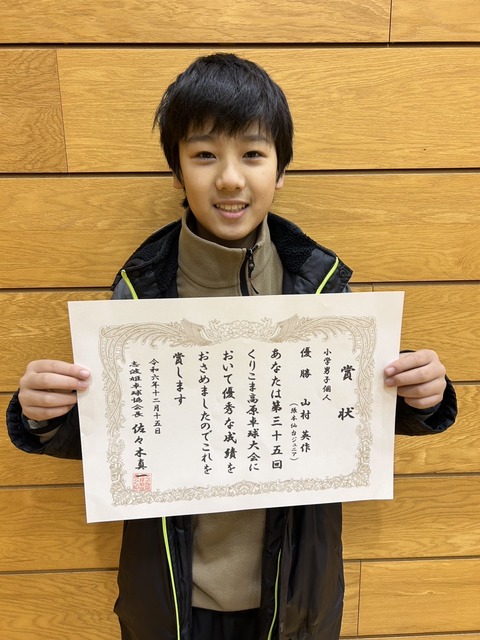 賞状
小学男子個人
優勝 山村 英作
(藤本仙台ジュニア)
あなたは第三十五回
くりこま高原卓球大会に
おいて優秀な成績を
おさめましたのでこれを
賞します
令和六年十二月十五日
志波姫卓球協会長 佐々木真一